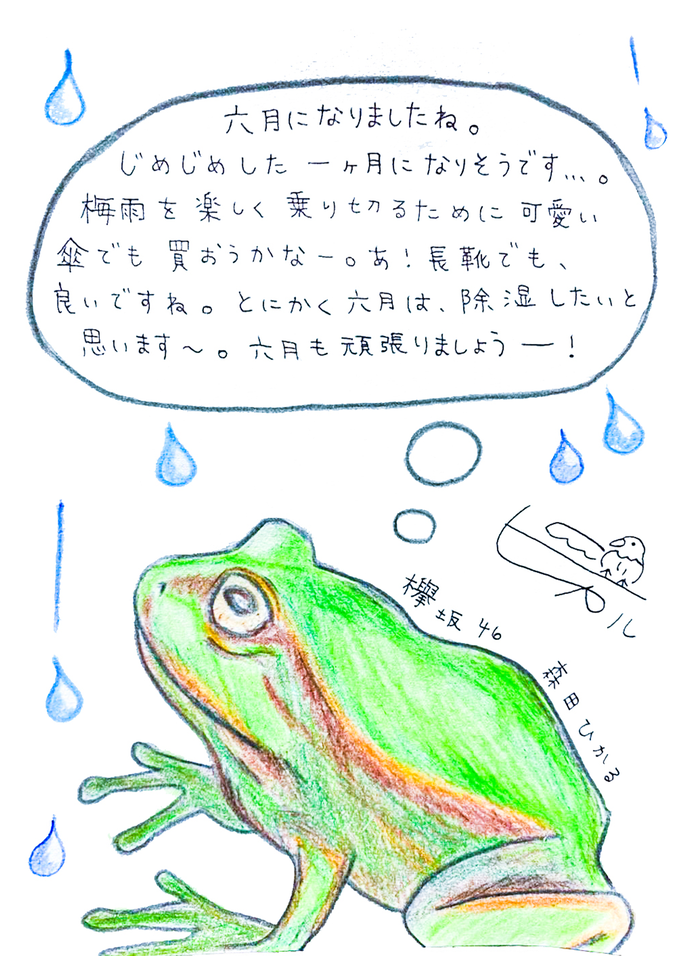 六月になりましたね。
じめじめした一ヶ月になりそうです...。
梅雨を楽しく乗り切るために可愛い
傘でも買おうかなー。あ!長靴でも、
良いですね。とにかく六月は、除湿したいと
思います〜。六月も頑張りましょうー!
欅坂46
森田ひかる